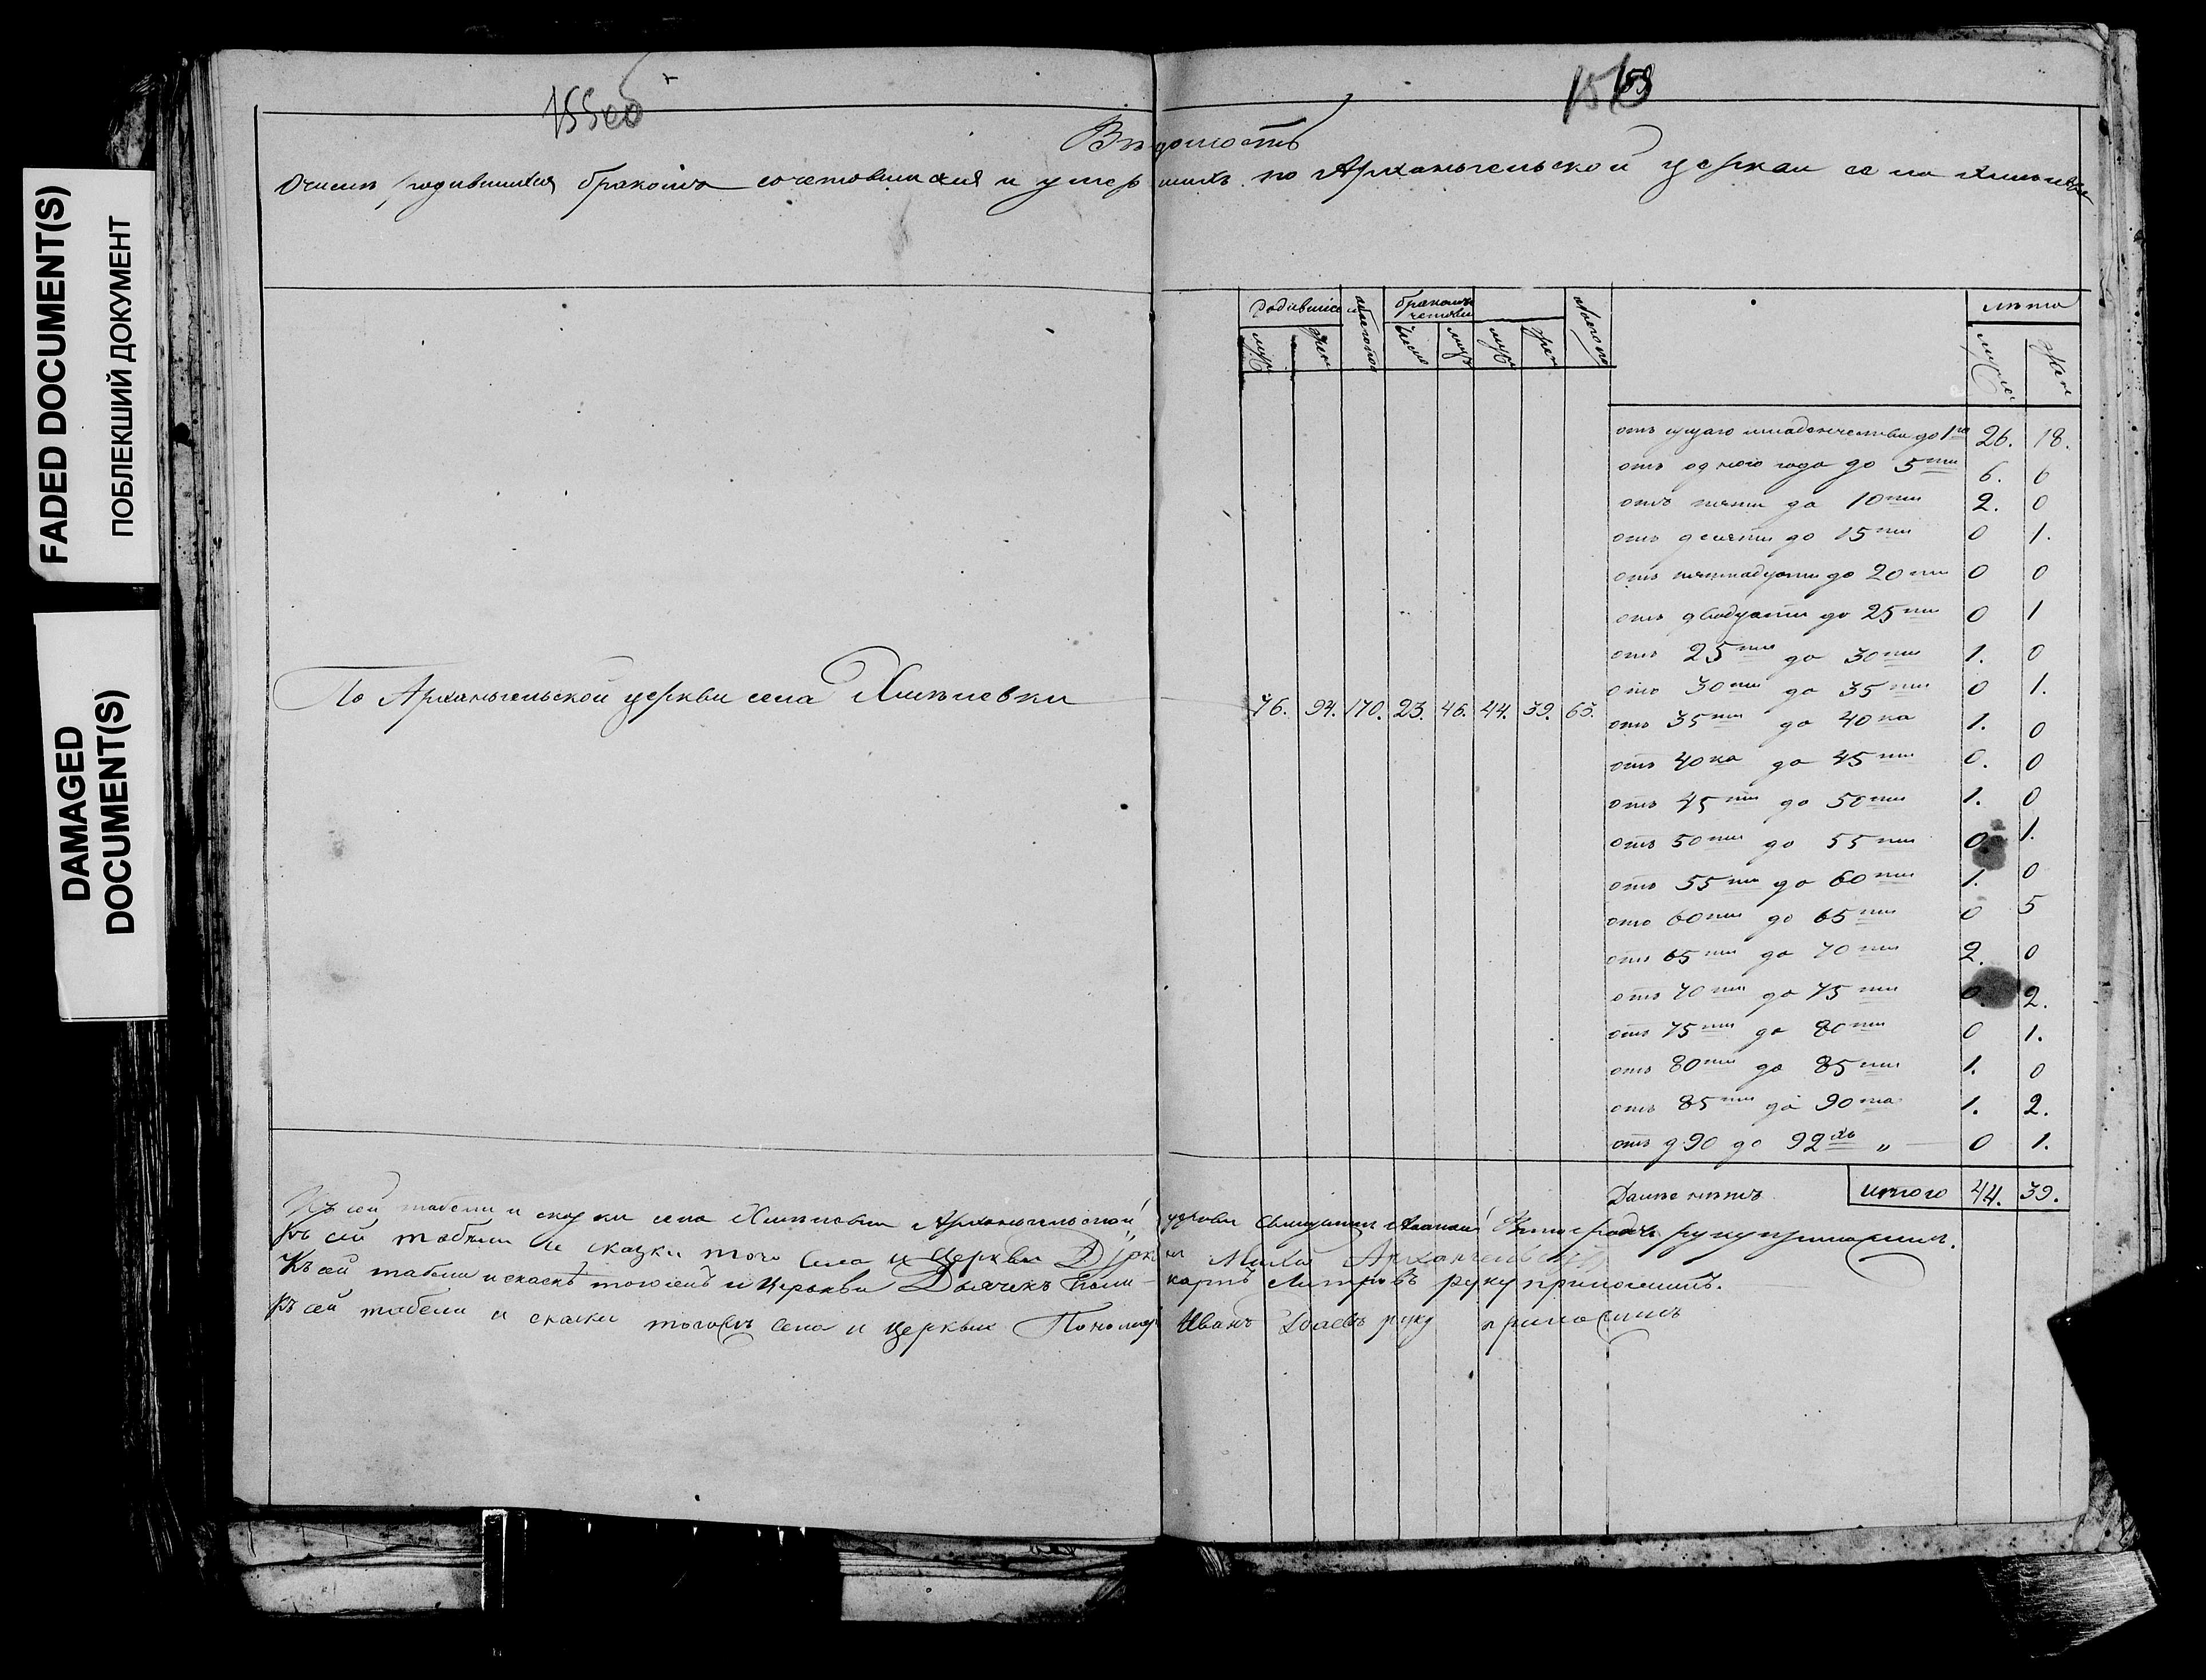 FADED DOCUMENT(S)
ПОБЛЕКШИЙ ДОКУМЕНТ
DAMAGED
DOCUMENT(S)
Вѣдомость
О числѣ родившихся бракомъ сочетовшихся и умершихъ по Архангельской церкви села
родившiеся
бракомъ
лѣта
муж
жен
обоего пол
число
муж
жен
обоего по
По Архангельской церкви села Хмѣлевки
76. 94. 170. 23. 46. 44. 39. 63.
отъ сущаго младенчества до 1го 26. 18.
отъ одного года до 5ти 6. 6
отъ пяти до 10ти 2. 0
отъ десяти до 15ти 0 1.
отъ пятнадцати до 20ти 0 0
отъ двадцати до 25ти 0 1
отъ 25ти до 30ти 1. 0
отъ 30ти до 35ти 0 1.
отъ 35ти до 40ка 1. 0
отъ 40ка до 45ти 0. 0
отъ 45ти до 50ти 1. 0
отъ 50ти до 55ти 0 1.
отъ 55ти до 60ти 1. 0
отъ 60ти до 65ти 0 5
отъ 65ти до 70ти 2. 0
отъ 70ти до 75ти 0. 2.
отъ 75ти до 80ти 0 1.
отъ 80ти до 85ти 1. 0
отъ 85ти до 90та 1. 2.
отъ 90 до 92хъ „ 0 1.
Далѣе нѣтъ итого 44. 39.
Къ сей табели и скаски села Хмѣлевки Архангельской церкви священникъ руку приложилъ.
Къ сей табели и скаски того села и Церкви Архангельскiй
Къ сей табели и скаскѣ того села и Церкви Дьячекъ Поликарпъ Петровъ руку приложилъ.
Къ сей табели и скаски тогожъ села и церкви Пономарь Иванъ руку приложилъ